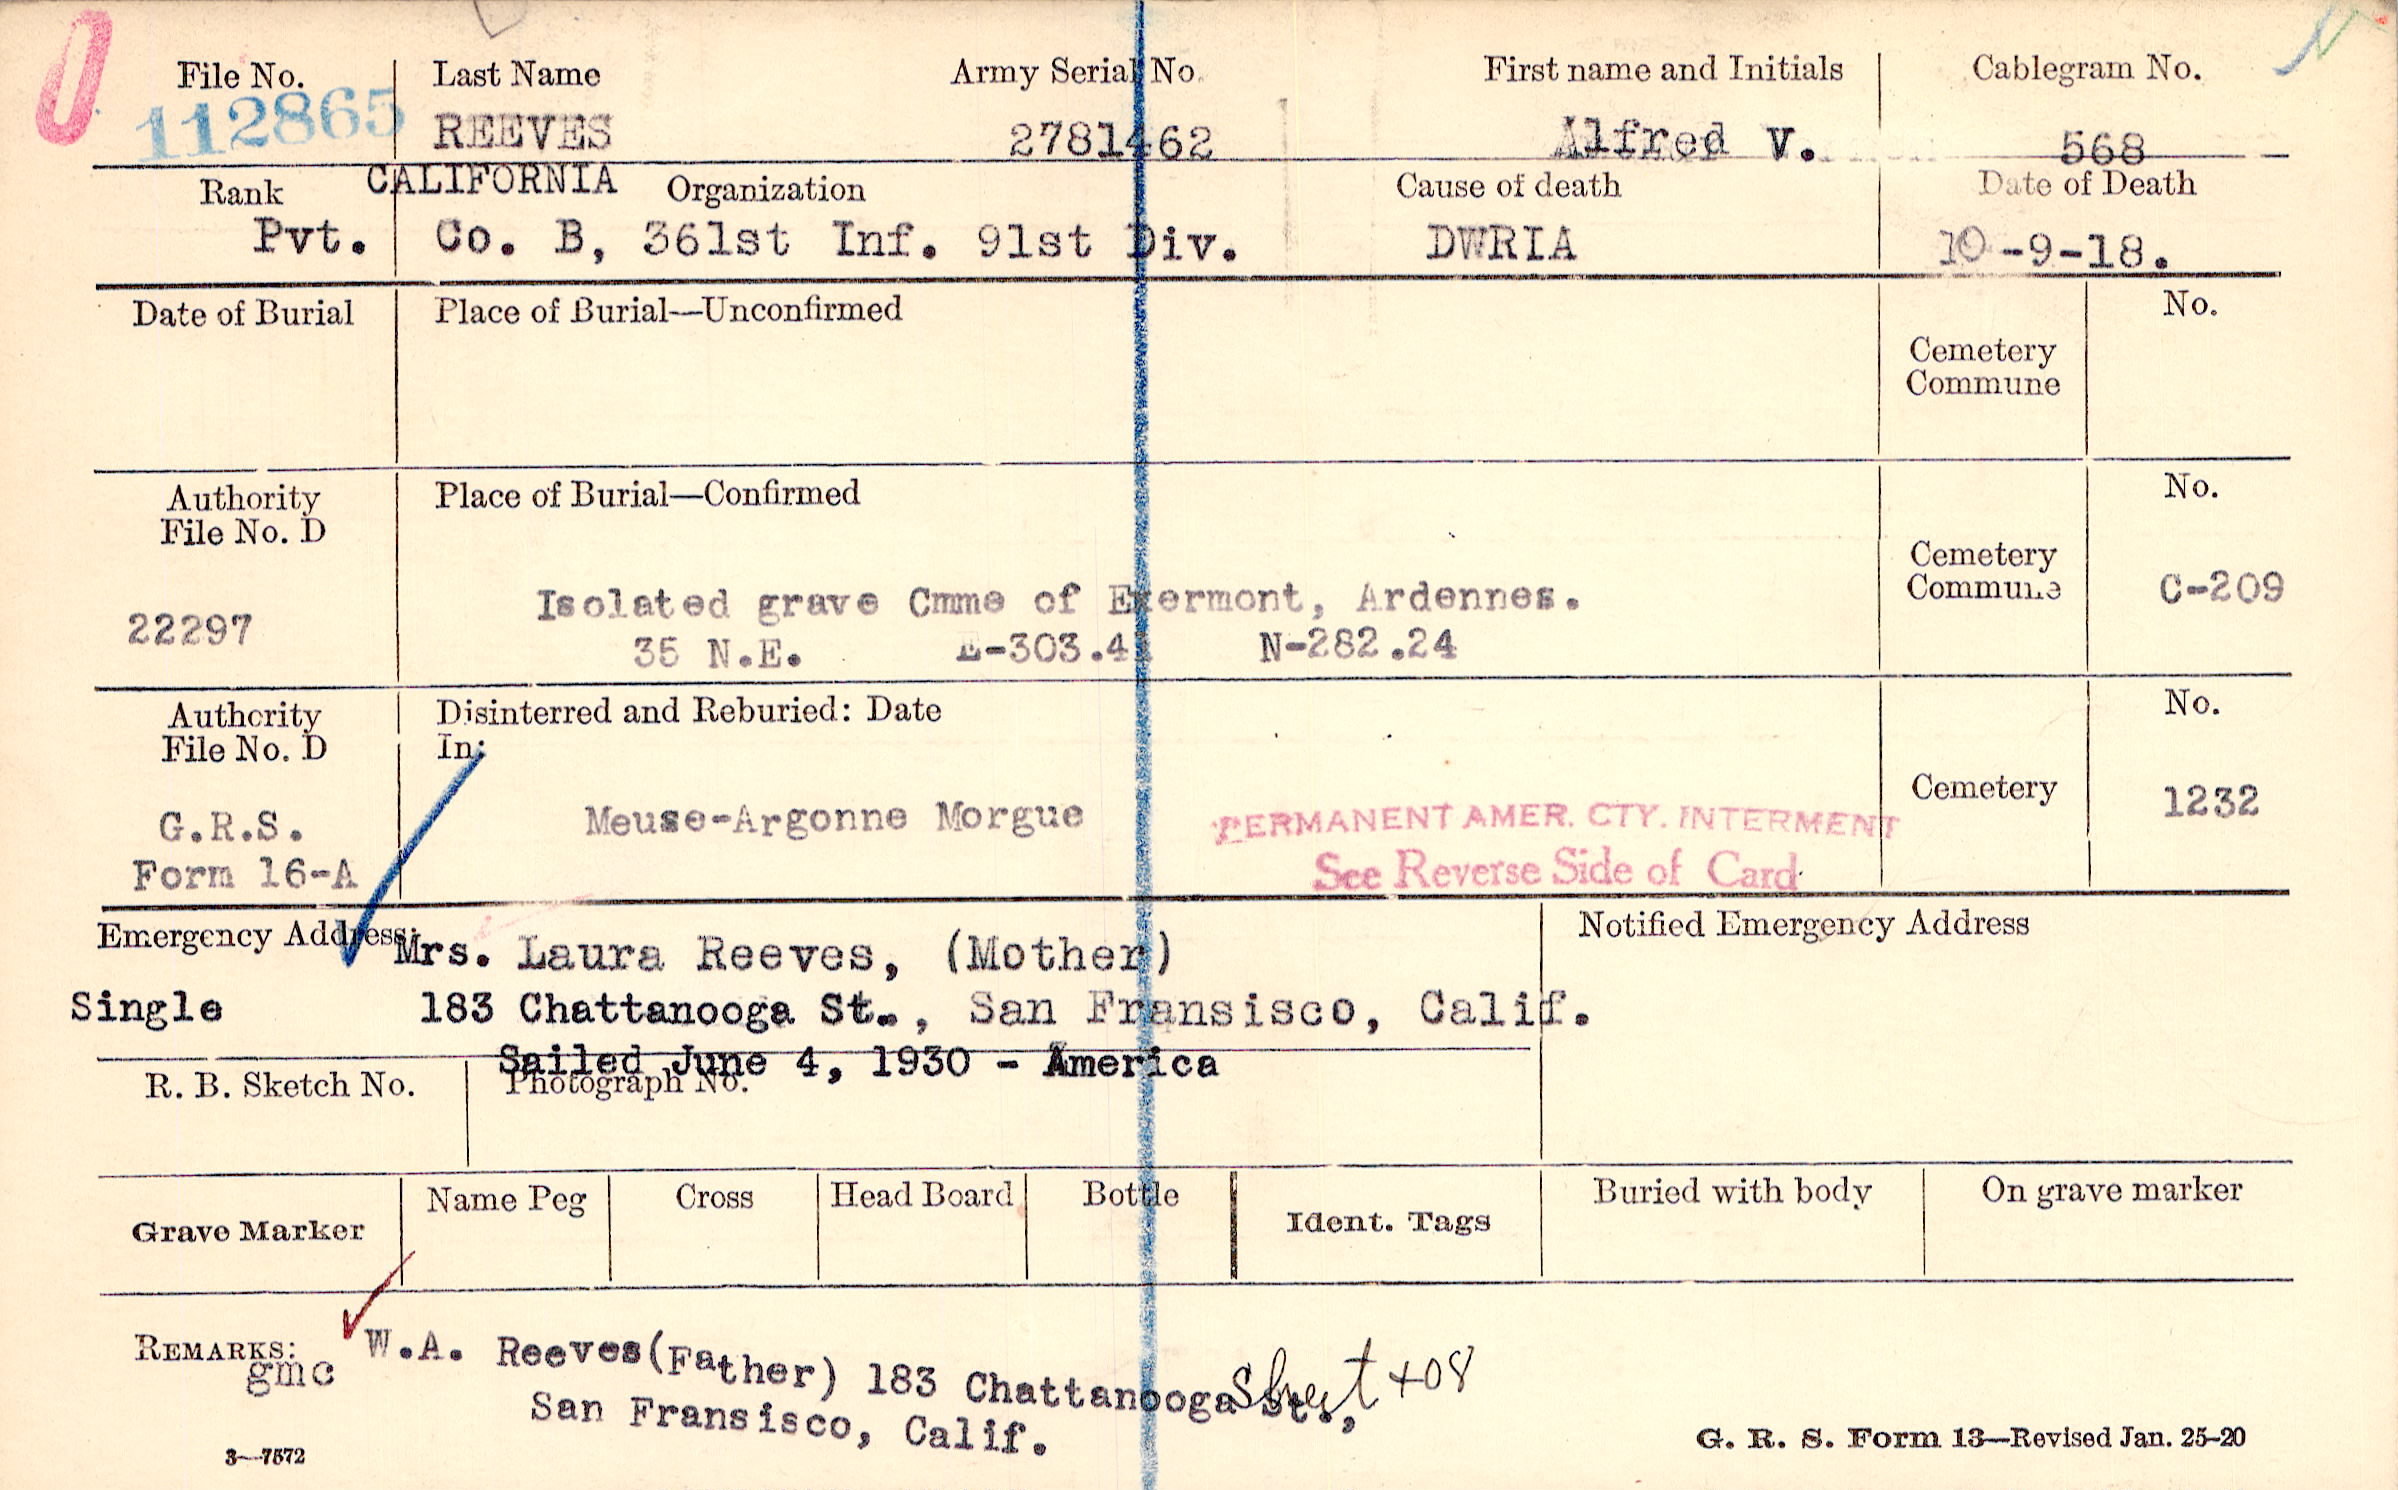 File No. Last Name Army Serial No. First name and Initials Cablegram No.
112865 REEVES 2781462 Alfred V. 568
Rank CALIFORNIA Organization Cause of death Date of Death
Pvt. Co. B, 361st Inf. 91st Div. DWRIA 10-9-18.
Date of Burial Place of Burial—Unconfirmed No.
Cemetery
Commune
Authority Place of Burial—Confirmed No.
File No. D
Cemetery
Commune C-209
Isolated grave Cmme of Exermont, Ardennes.
22297 35 N.E. E-303.41 N-282.24
Authority Disinterred and Reburied: Date No.
File No. D In:
Cemetery 1232
G.R.S. Meuse-Argonne Morgue PERMANENT AMER. CTY. INTERMENT
Form 16-A See Reverse Side of Card
Emergency Address: Mrs. Laura Reeves, (Mother) Notified Emergency Address
Single 183 Chattanooga St., San Fransisco, Calif.
Sailed June 4, 1930 - America
R. B. Sketch No. Photograph No.
Grave Marker Name Peg Cross Head Board Bottle Ident. Tags Buried with body On grave marker
REMARKS: W.A. Reeves(Father) 183 Chattanooga St.,
gmc San Fransisco, Calif.
3—7572 G. R. S. Form 13—Revised Jan. 25-20